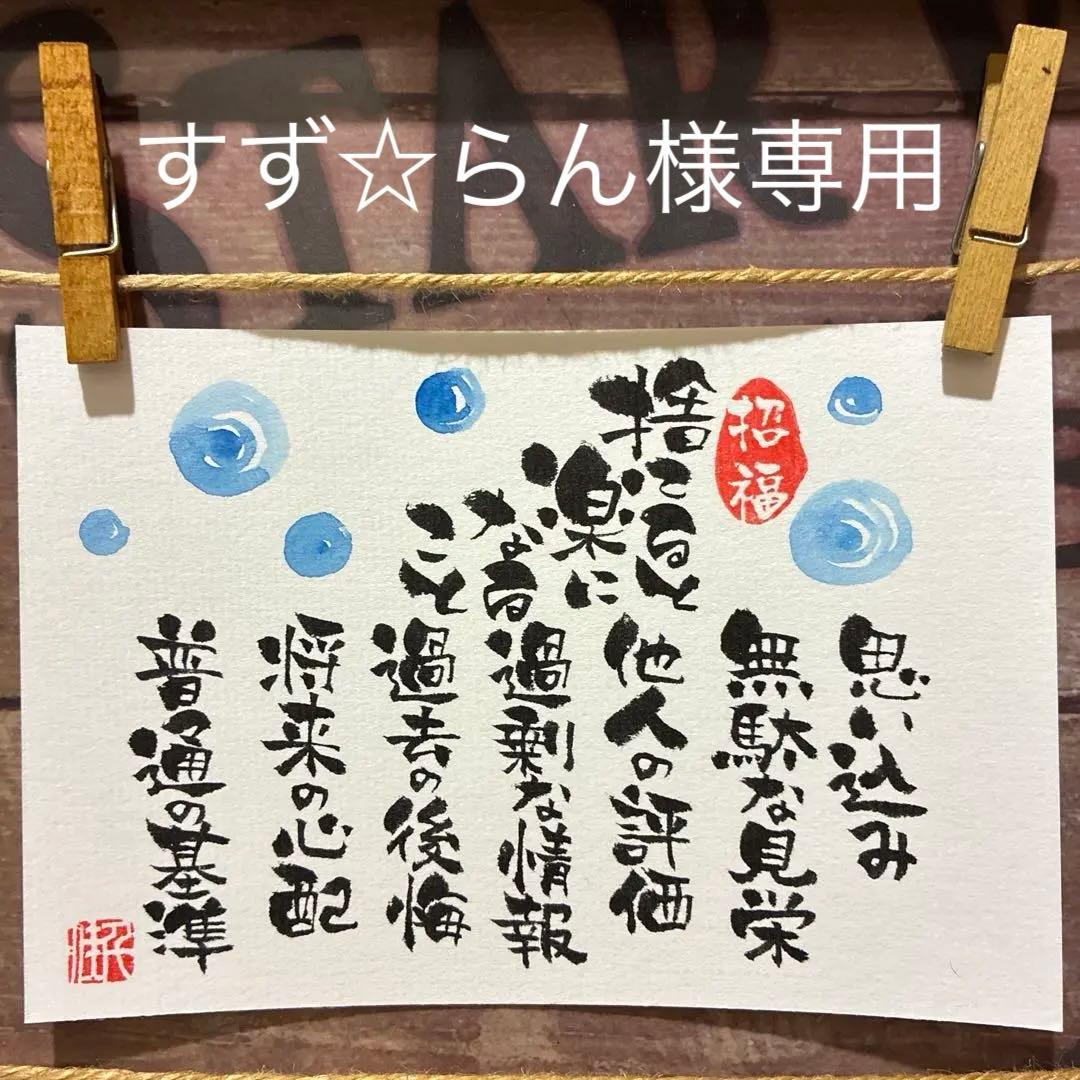 すず☆らん様専用
招福
捨てると
楽に
なる
こと
思い込み
無駄な見栄
他人の評価
過剰な情報
過去の後悔
将来の心配
普通の基準